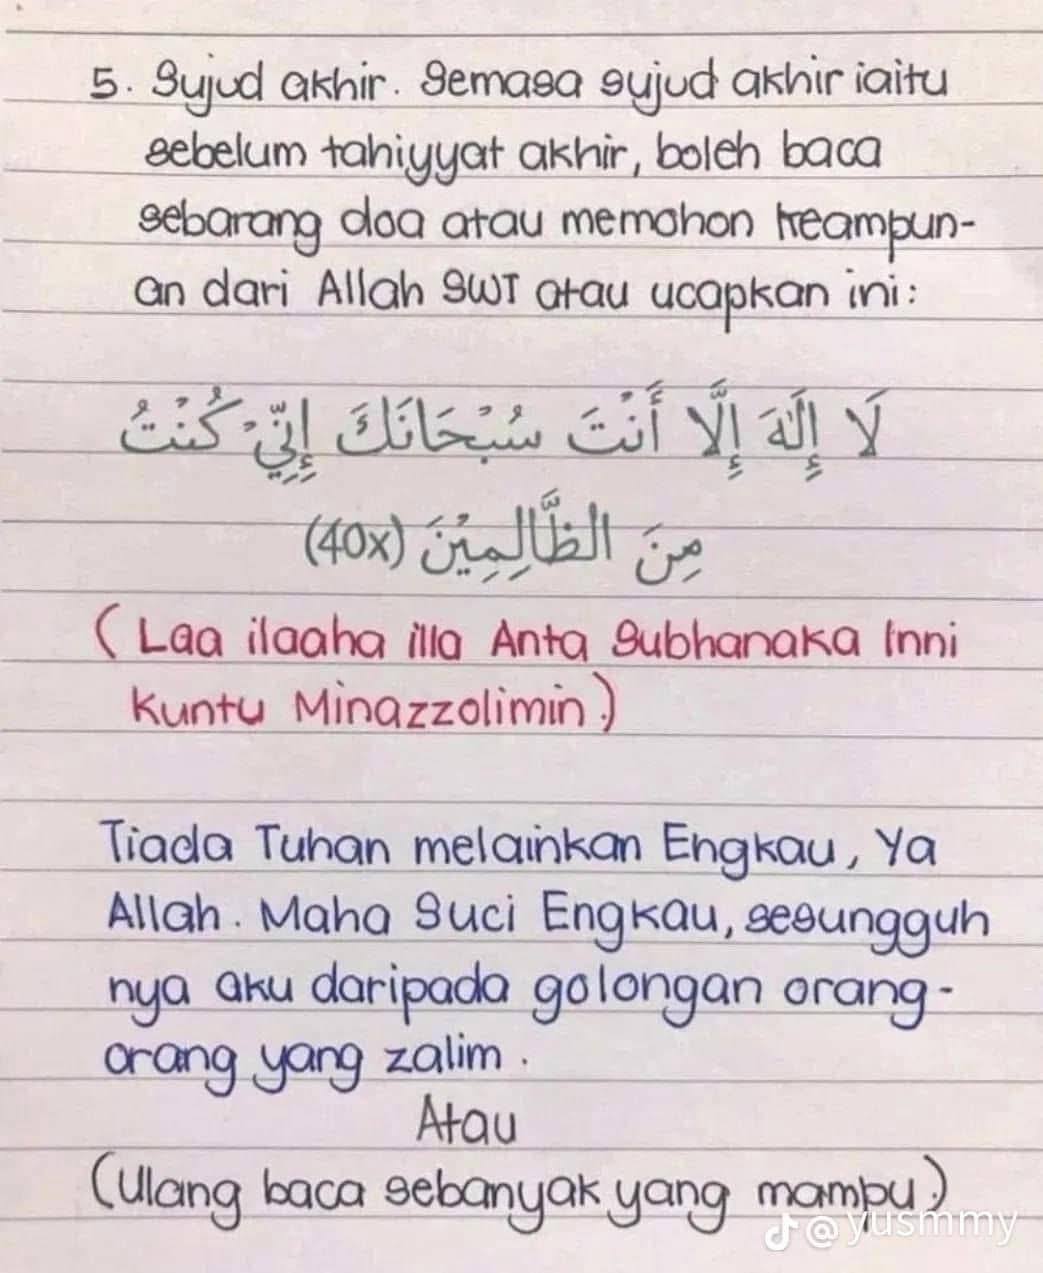 5. Sujud akhir. Semasa sujud akhir iaitu
sebelum tahiyyat akhir, boleh baca
sebarang doa atau memohon keampun-
an dari Allah SWT atau ucapkan ini:
لَا إِلَٰهَ إِلَّا أَنْتَ سُبْحَانَكَ إِنِّيْ كُنْتُ
مِنَ الظَّالِمِيْنَ (40x)
(Laa ilaaha illa Anta Subhanaka Inni
Kuntu Minazzolimin.)
Tiada Tuhan melainkan Engkau, Ya
Allah. Maha Suci Engkau, sesungguh
nya aku daripada golongan orang-
orang yang zalim.
Atau
(Ulang baca sebanyak yang mampu.)
@yusmmy